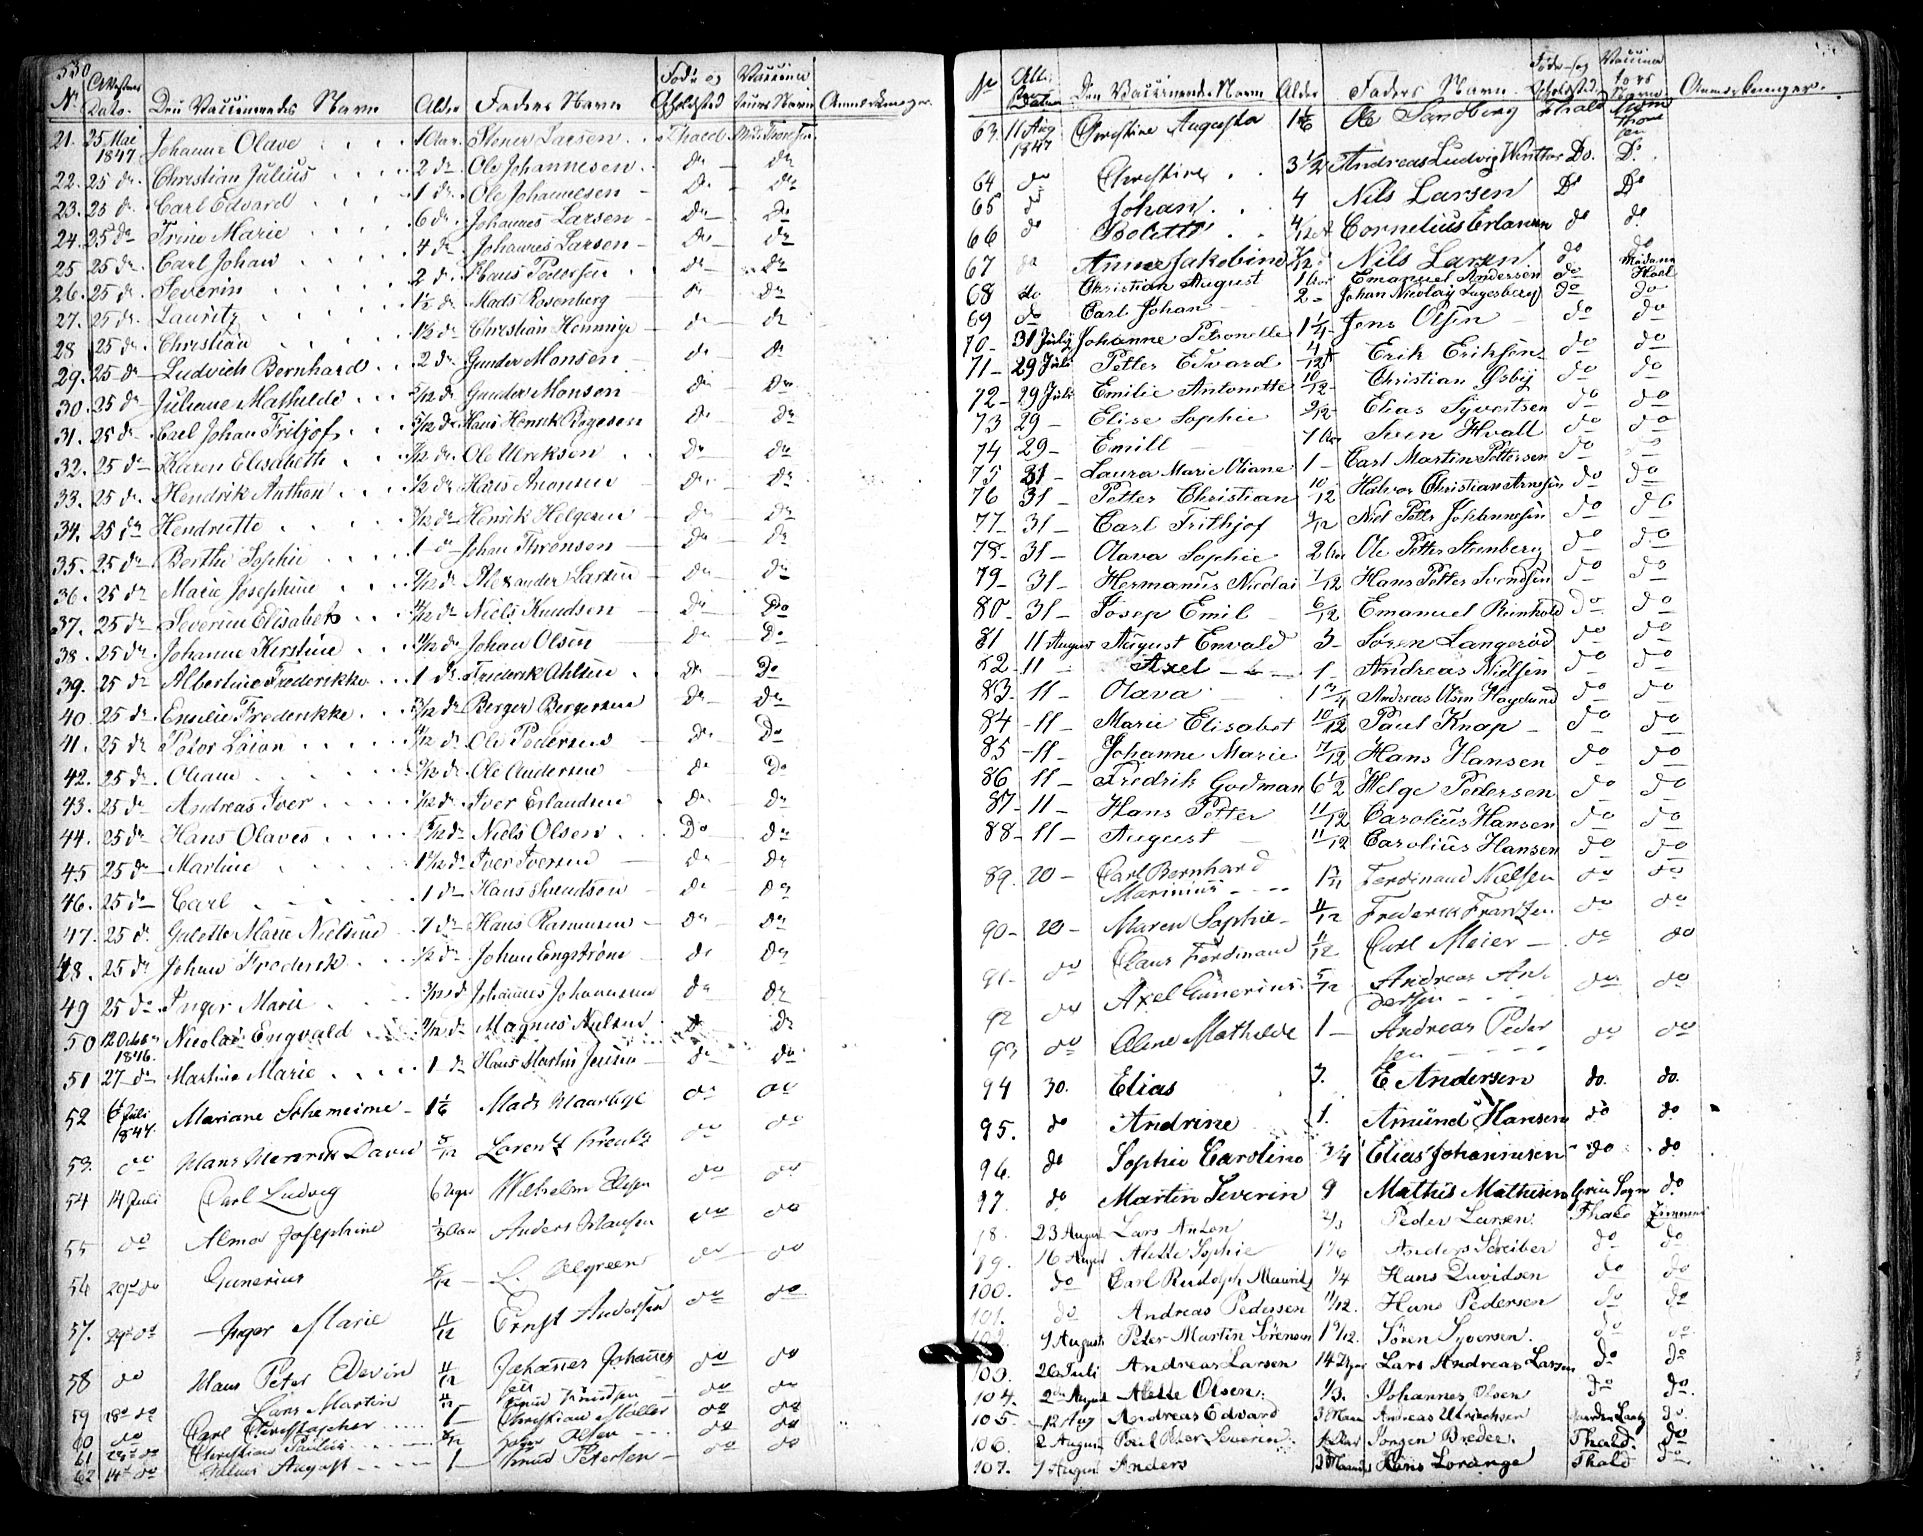 530
No Attestens Dato. Den Vaccineredes Navn Alder Faders Navn Føde og Opholdsted Vaccinateurs Navn Anmærkninger.
21. 25 Mai 1847 Johanne Olave 1 Aar Larsen Fhald
22. 25 do Christian Julius 2 do Ole Johannesen do do
23. 25 do Carl Edvard 1 do Ole Johannesen do do
24. 25 do Trine Marie 6 do Johannes Larsen do Do
25 25 do Carl Johan 4 do Johannes Larsen do do
26. 25 do Severin 2 do Hans Pedersen do do
27. 25 do Lauritz 1½ do Mads Rosenberg do do
28 25 do Christian 1½ do Christian Henninge do do
29. 25 do Ludvich Bernhard 2 do Gunder Monsen do do
30. 25 do Juliane Mathilde 5/12 do Gunder Monsen do do
31. 25 do Carl Johan Fritjof 5/12 do Hans Henrik Bøgesen do do
32. 25 do Karen Elisabeth /12 do Ole Ulriksen do do
33. 25 do Hendrik Anthon ½ do Hans do do
34. 25 do Hendriette /12 do Henrik Helgesen do do
35. 25 do Berthe Sophie 1 do Johan Thronsen do do
36 25 do Marie Josephine /12 do Alexander Larsen do do
37. 25 do Severine Elisabeth /12 do Niels Knudsen do Do
38. 25 do Johanne Kirstine /12 do Johan Olsen do Do
39. 25 do Albertine Frederikke 1 do Frederik Ahlsen do Do
40. 25 do Emilie Frederikke /12 do Berger Bergersen do do
41. 25 do Peter /12 do Ole Pedersen do Do
42. 25 do Oliane /12 do Ole Andersen do Do
43. 25 do Andreas Iver /12 do Iver Erlandsen do do
44. 25 do Hans Olaves /12 do Niels Olsen Do do
45 25 do Martine 1 /12 do Iver Iversen do do
46. 25 do Carl 1 do Hans Svendsen do do
47. 25 do Marie Nielsine 7 do Hans Rasmussen do do
48. 25 do Johan Frederik ½ do Johan Engstrøm do do
49 25 do Inger Marie /12 do Johannes Johannesen do do
50 12 Octobr 1846. Nicolai Engvald /12 do Magnus Nielsen do do
51 27 do Martine Marie 1 do Hans Martin Jensen do do
52 6 Juli 1847. Mariane 1 1/6 Mads do do
53. do Hans Henrik David /12 Lorentz do do
54 14 Juli Carl Ludvig 6 Uger Wilhelm do do
55 do Alma Josephine Aar Anders Hansen do do
56 29 do Gunerius /12 L. do do
57. 29 do Inger Marie 11/12 Ernst Andersen do do
58 do Hans Peter Edevin 11/12 Johannes Johannessen do do
59 18 do Lars Martin 11/12 Knud Knudsen do do
60 do Carl Christopher 1 Christian Møller do do
61 29 do Christian /12 John Olsen do do
62 14 do Julius August 1 Knud Petersen do do
No Attestens Datum Den Vaccineredes Navn Alder Faders Navn Føde- og Opholdsted Vaccinators Navn Anmærkninger.
63. 11 Aug 1847 Christine Augusta 1 1/6 Ole Sandberg Fhald
64 do Christine 3 ½ Andreas Ludvig Winther Do. D.
65 do Johan 4 Nils Larsen Do Do
66 do Bolette 4/12 Cornelius Erlansen do do
67 do Anne Jakobine /12 Nils Larsen. do Madam
68 do Christian August 1 Aar Emanuel Andersen do Hoel
69 do Carl Johan 2 - Johan Nicolay do do
70 - 31 July Johanne Petronelle 1 ¼ Jens Olsen do do
71 - 29 Juli Petter Edvard 4/12 Erik Eriksen do do
72 - 29 Juli Emilie Antonette 10/12 Christian Ysbÿ do do
73 29 - Elise Sophie 9/12 Elias Syvertsen do do
74 29 - Emill 7 Aar Sven Hvall do do
75 31 - Laura Marie Oliane 1 - Carl Martin Pettersen do do
76 31 - Petter Christian 10/12 Halvor Christian Arnesen do do
77 - 31 - Carl Frithjof 9/12 Niel Petter Johannesen do do
78 - 31 - Olava Sophie 2 Aar Ole Petter Steenberg do do
79 - 31 - Hermanus Nicolai /12 Hans Petter Svendsen do do
80 - 31 - Josep Emil 6/12 Emanuel Reinhold do do
81 11 August August Envald 3 - Søren Langerød do do
82 - 11 - Axel 1 - Andreas Nielsen do do
83 - 11 - Olava 1 ¾ Andreas Olsen Høgelund do do
84 - 11 - Marie Elisabet 10/12 Paul Knap do do
85 - 11 - Johanne Marie /12 Hans Hansen do do
86 11 - Fredrik Godman 6 ½ Helge Pedersen do do
87 - 11 - Hans Petter 11/12 Carolius Hansen do do
88 - 11 - August 11/12 Carolius Hansen do do
89. 20 - Carl Bernhard Marinius 1 Ferdinand Nielsen do do
90 - 20 - Maren Sophie 11/12 Frederik Frantzen do do
91 - do Claus Ferdinand 11/12 Carl Meier do do
92 do Axel Gunerius 5/12 Andreas Andersen do do
93 do Aline Mathilde 1 - Andreas Pedersen do do
94 30. Elias 3. E Andersen do. do.
95. do Andrine 1. Amund Hansen do do
96. do Sophie Caroline 3/4 Elias Johannesen do do
97. do Martin Severin 9 Mathis Mathisen Sogn do
98. 23 August Lars Anton 2/3 Peder Larsen. Fhald
99. 16 August Alette Sophie 1 1/6 Anders Schreiber do do
100. do Carl Rudolph Mauritz 1/4 Hans Davidsen do do
101. do Andreas Pedersen 11/12. Hans Pedersen do do
102. 9 August Peter Martin Sørensen 1 9/12. Søren Syversen. do do
103. 26 Juli Andreas Larsen 14 Dage Lars Andreas Larsen do do
104. 2den August Alette Olsen. 1/3. Johannes Olsen do do.
105. 12 Aug Andreas Edvard 3 Andreas Ulrichsen do.
106. 2 August Poul Peter Severin. Aar Jørgen Breder. Fhald. do
107. 7 August Anders 3 Maaneder Hans Lorange Fhald do